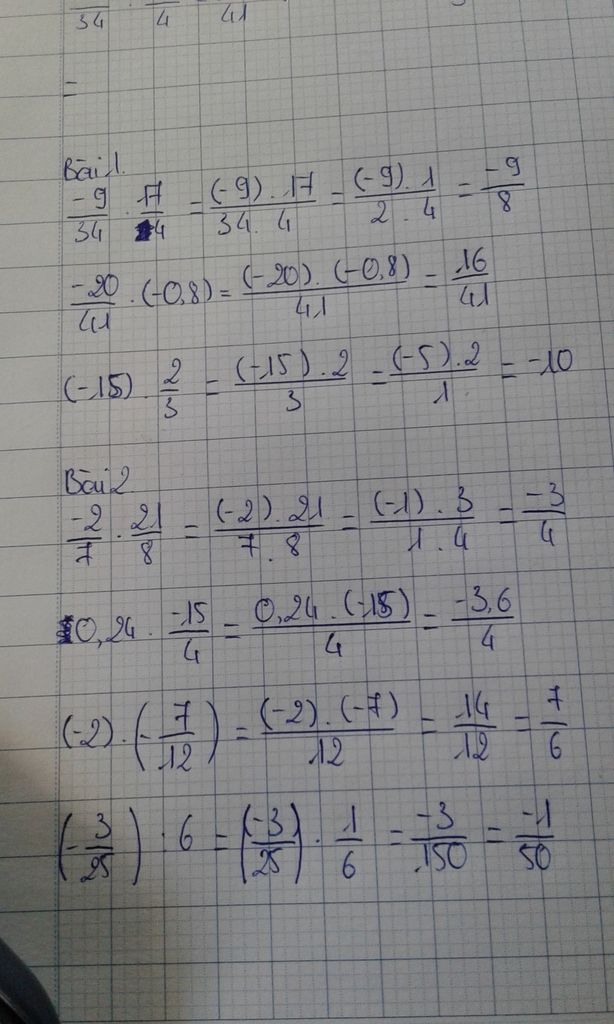 34 4 41
=
Bài 1.
-9/34 . 17/4 = (-9) . 17/34 . 4 = (-9) . 1/2 . 4 = -9/8
-20/41 . (-0,8) = (-20) . (-0,8)/41 = 16/41
(-15) . 2/3 = (-15) . 2/3 = (-5) . 2/1 = -10
Bài 2
-2/7 . 21/8 = (-2) . 21/7 . 8 = (-1) . 3/1 . 4 = -3/4
0,24 . -15/4 = 0,24 . (-15)/4 = -3,6/4
(-2) . (-7/12) = (-2) . (-7)/12 = 14/12 = 7/6
(-3/25) : 6 = (-3/25) . 1/6 = -3/150 = -1/50